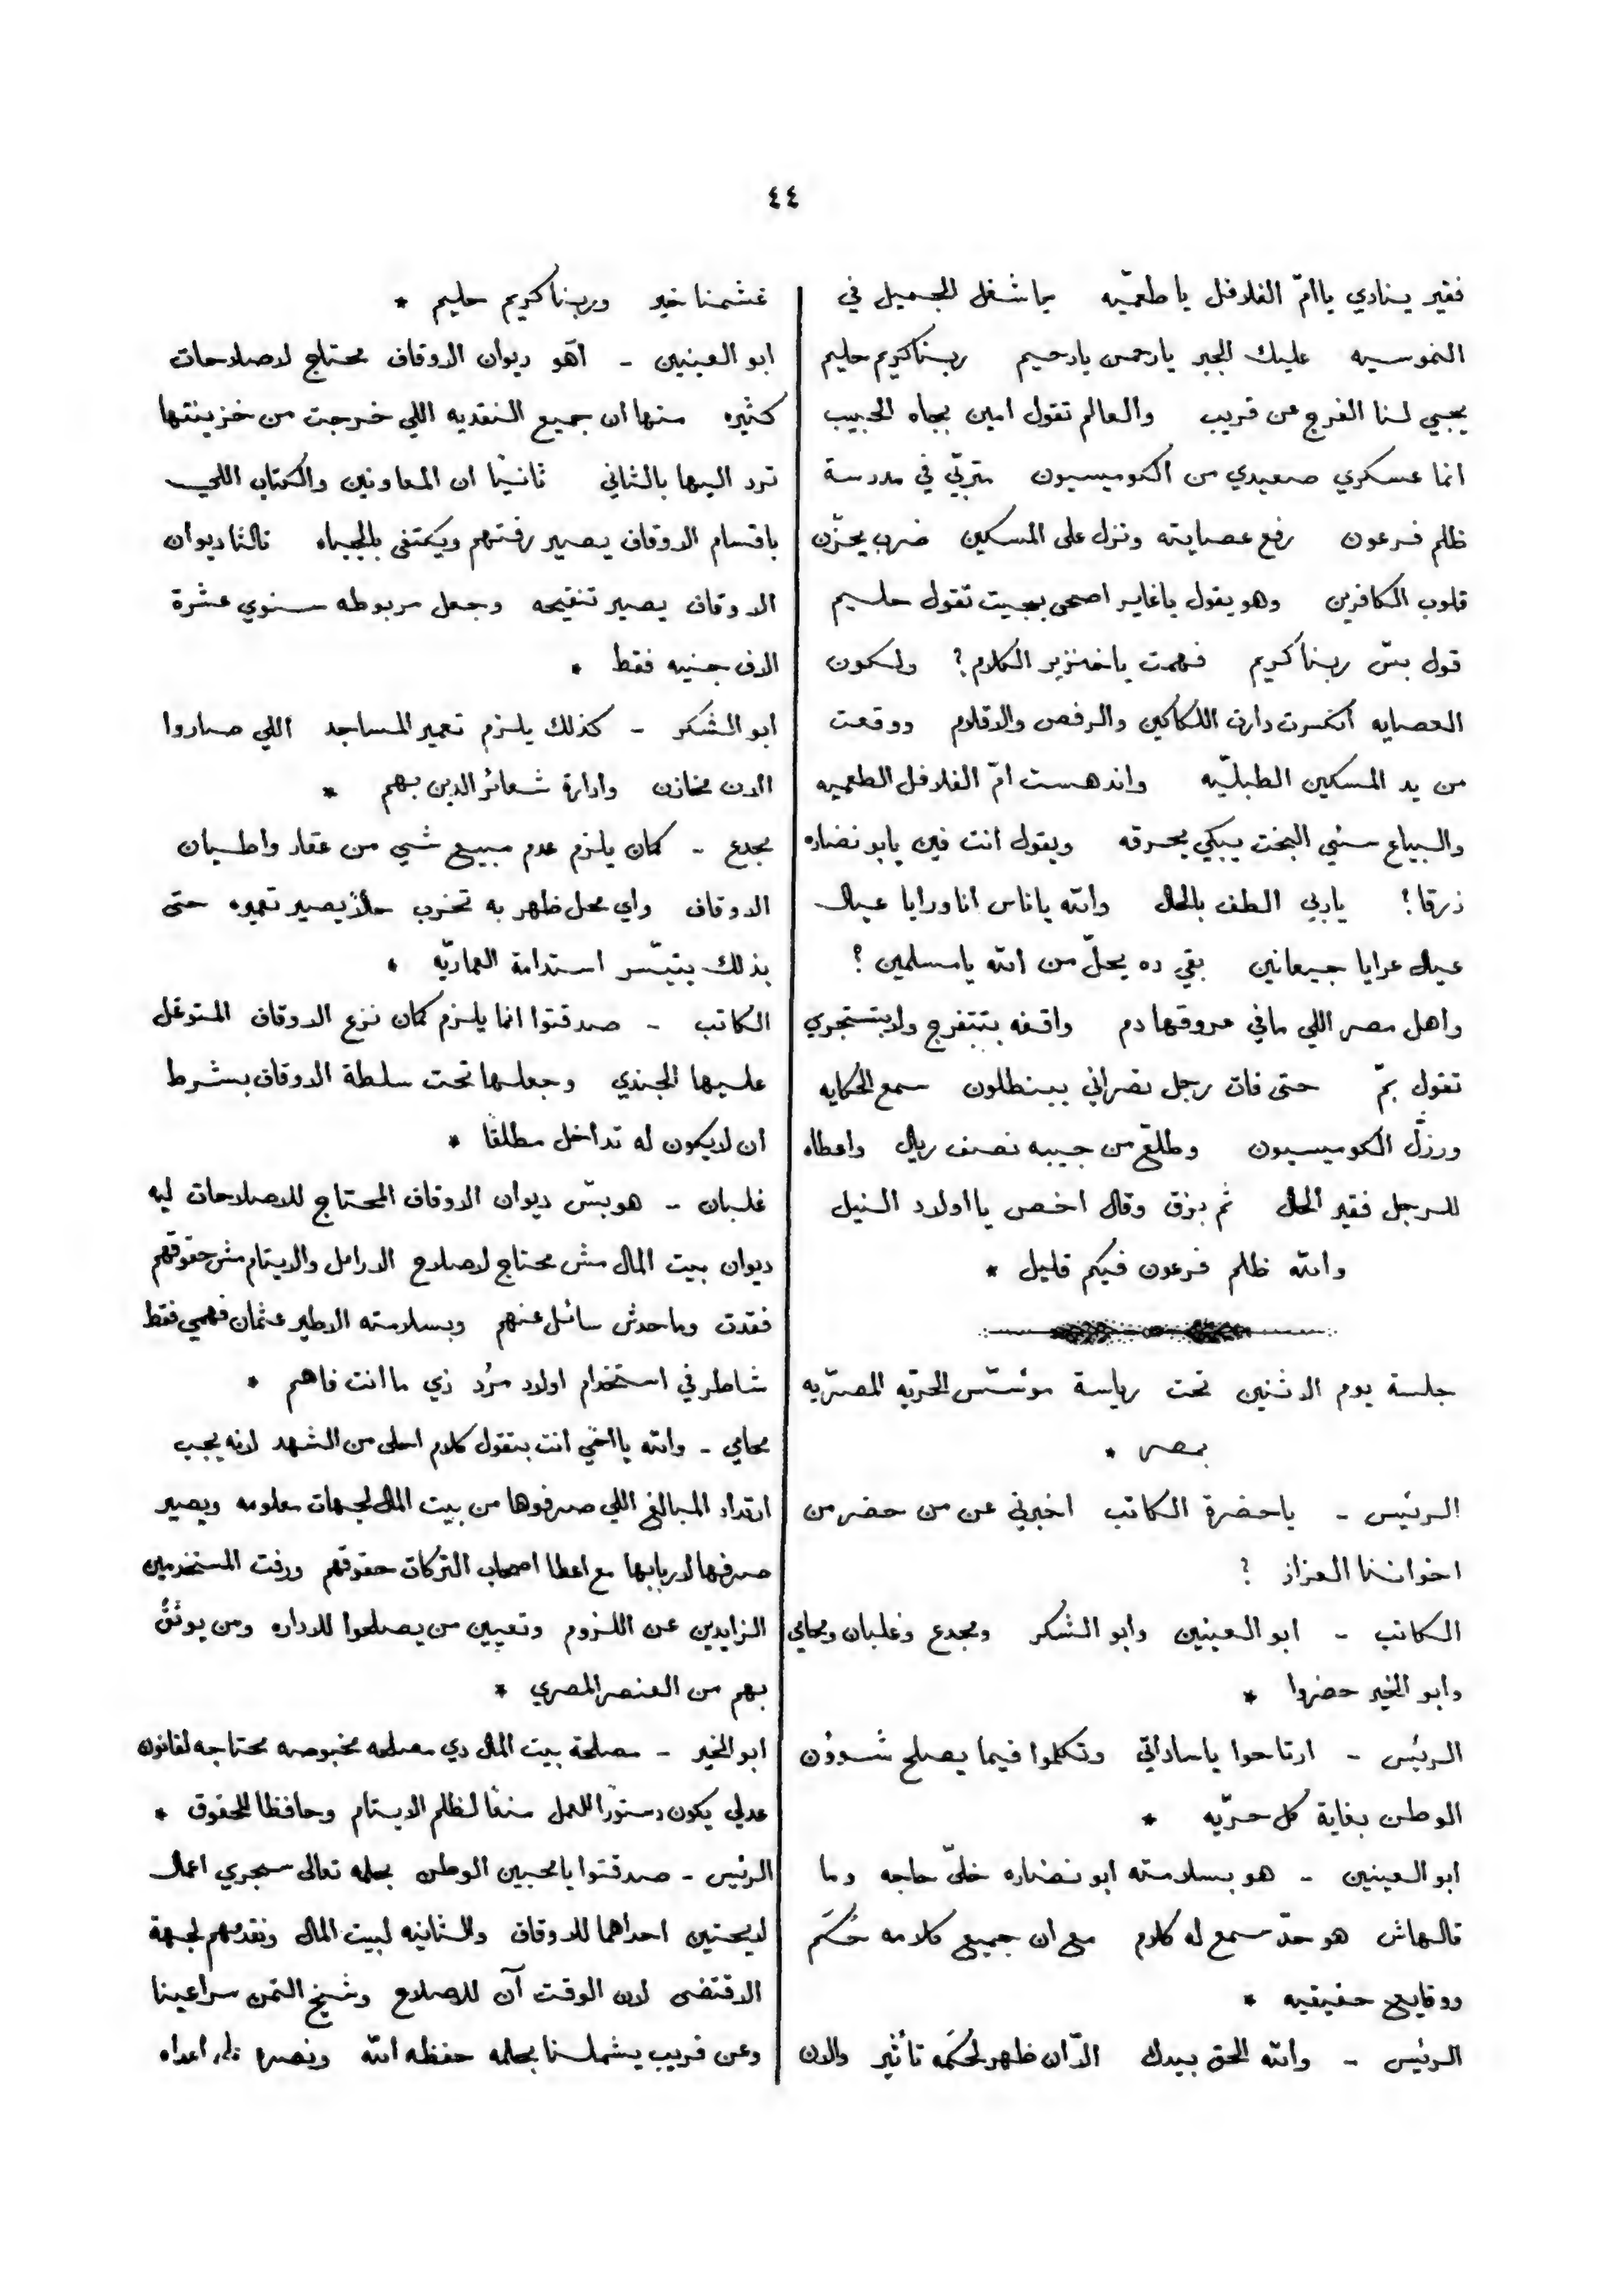 ٤٤
فقير ينادي ياامّ الفلافل ياطعميّه يما شغل الجميل في
الموسيه عليك الجبر يارحمن يارحيم ربناكريم حليم
يجيي لنا الفرج عن قريب والعالم تقول امين بجاه الحبيب
انما عسكري صعيدي من الكوميسيون متربّي في مدرسة
ظلم فرعون رفع عصايته ونزل على المسكين ضرب يحزّن
قلوب الكافرين وهو يقول ياغاير اصحى بجيت تقول حليم
قول بسّ ربناكريم فهمت ياخنزير الكلام؟ ولكون
العصايه أنكسرت دارت اللكاكين والرفص والاقلام ووقعت
من يد المسكين الطبليّه واندهست امّ الفلافل الطعميه
والبياع سئي البخت يبكي بحرقه ويقول انت فين يابو نضاره
زرقا؟ ياربي الطف بالحال والله ياناس انا ورايا عيال
عيال عرايا جيعانين بقي ده يحلّ من الله يامسلمين؟
واهل مصر اللي مافي عروقها دم واقفه بتتفرج ولا بتستجري
تقول بمّ حتى فات رجل نصراني ببنطلون سمع الحكايه
ورزّل الكوميسيون وطلّع من جيبه نصف ريال واعطاه
للرجل فقير الحال ثم بزق وقال اخص يااولاد النيل
والله ظلم فرعون فيكم قليل *
جلسة يوم الاثنين تحت رياسة موئسّس الحريّه المصريّه
بمصر *
الرئيس - ياحضرة الكاتب اخبرني عن من حضر من
اخواننا العزاز ؟
الكاتب - ابو العينين وابو الشكر ومجدع وغلبان ومحامي
وابو الخير حضروا *
الرئيس - ارتاحوا ياساداتي وتكلموا فيما يصلح شوؤن
الوطن بغاية كل حريّه *
ابو العينين - هو بسلامته ابو نضاره خلّى حاجه وما
قالهاش هو حدّ سمع له كلام مع ان جميع كلامه حُكَم
ووقايع حقيقيه *
الرئيس - والله الحق بيدك الاّان ظهر لحُكَمه تأثير والان
غشمنا خير وربناكريم حليم *
ابو العينين - آهو ديوان الاوقاف محتاج لاصلاحات
كثيره منها ان جميع النقديه اللي خرجت من خزينتها
ترد اليها بالثاني ثانيًا ان المعاونين والكتاب اللي
باقسام الاوقاف يصير رفتهم ويكتفى بالجباه ثالثا ديوان
الاوقاف يصير تنقيحه وجعل مربوطه سنوي عشرة
الاف جنيه فقط *
ابو الشكر - كذلك يلزم تعمير المساجد اللي صاروا
الان مخازن وادارة شعائر الدين بهم *
مجدع - كمان يلزم عدم مبيع شي من عقار واطيان
الاوقاف واي محل ظهر به تخرب حالاً يصير تعميره حتى
بذلك يتيسّر استدامة العماريّه *
الكاتب - صدقتوا انما يلزم كمان نزع الاوقاف المتوغل
عليها الجندي وجعلها تحت سلطة الاوقاف بشرط
ان لايكون له تداخل مطلقًا *
غلبان - هو بسّ ديوان الاوقاف المحتاج للاصلاحات ليه
ديوان بيت المال مش محتاج لاصلاح الارامل والايتام مش حقوقهم
فقدت وماحدش سائل عنهم وبسلامته الاطير عثمان فهمي فقط
شاطر في استخدام اولاد مرُد زي ماانت فاهم *
محامي - والله يااخي انت بتقول كلام احلى من الشهد لانه يجب
ارتداد المبالغ اللي صرفوها من بيت المال لجهات معلومه ويصير
صرفها لاربابها مع اعطا اصحاب التركات حقوقهم ورفت المستخدمين
الزايدين عن اللزوم وتعيين من يصلحوا للاداره ومن يوثق
بهم من العنصر المصري *
ابو الخير - مصلحة بيت المال دي مصلحه مخبوصه محتاجه لقانون
عدلي يكون دستورًا للعمل منعًا لظلم الايتام وحافظا للحقوق *
الرئيس - صدقتوا يامحبين الوطن بحلمه تعالى سنجري اعمال
لايحتين احداهما للاوقاف والثانيه لبيت المال ونقدمهم لجهة
الاقتضى لان الوقت آن للاصلاح وشيخ التمن سراعينا
وعن قريب يشملنا بحلمه حفظه الله ونصره على اعداه